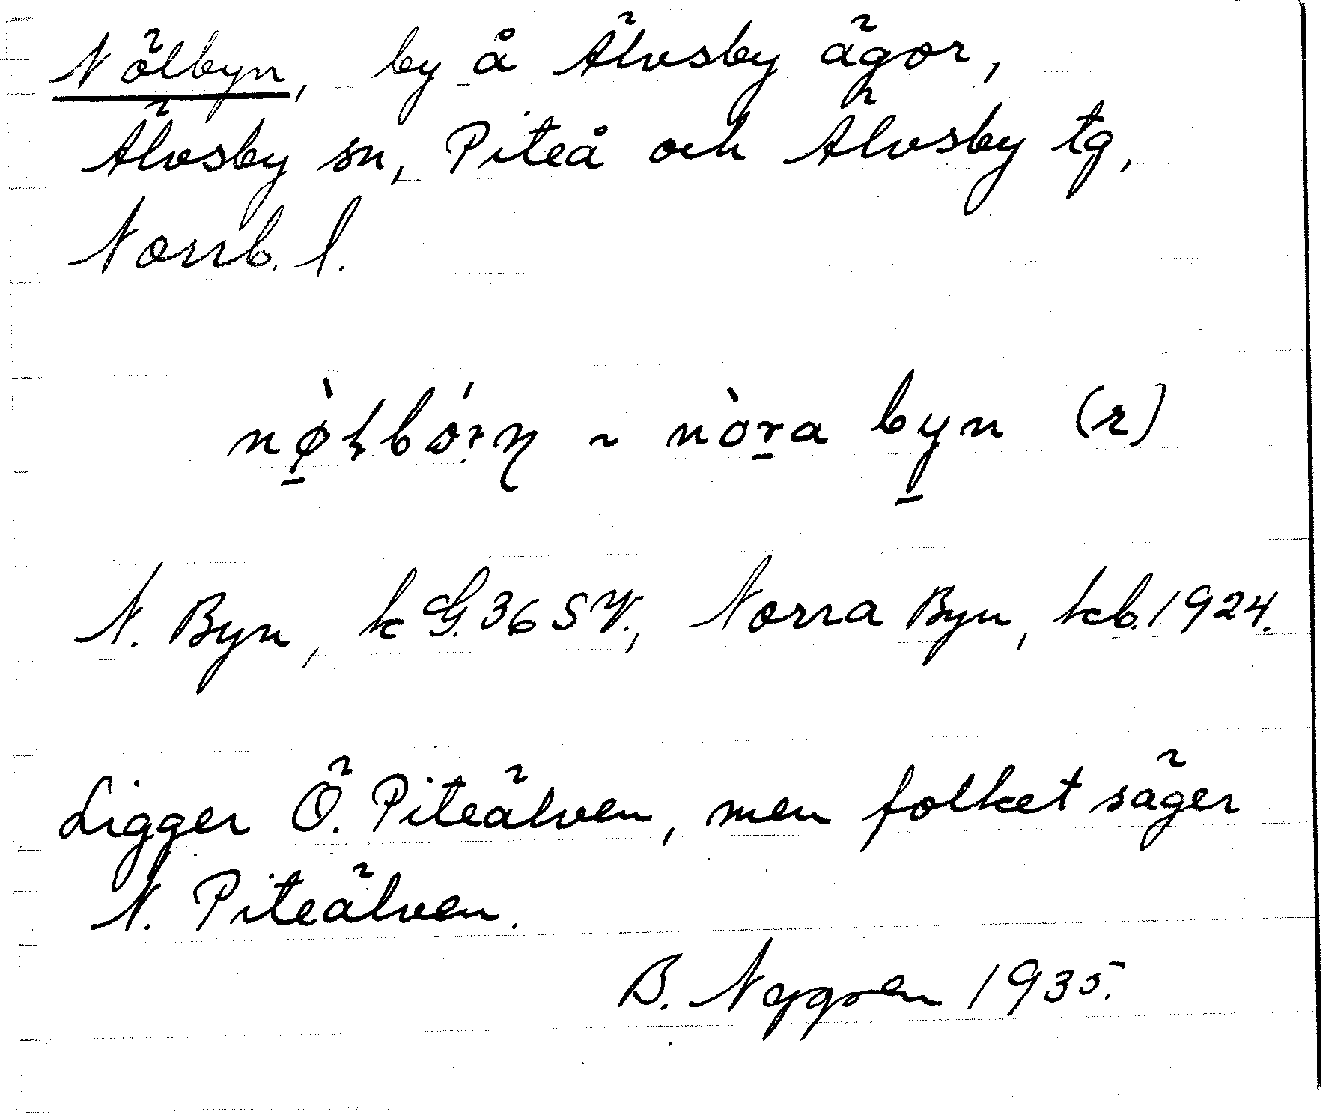 Nölbyn, by å Älvsby ägor,
Älvsby sn, Piteå och Älvsby tg,
Norrb. l.
~ nòra byn (r)
N. Byn, k G. 36 SV., Norra Byn, kb. 1924.
Ligger Ö. Piteälven, men folket säger
N. Piteälven.
B. Nygren 1935.